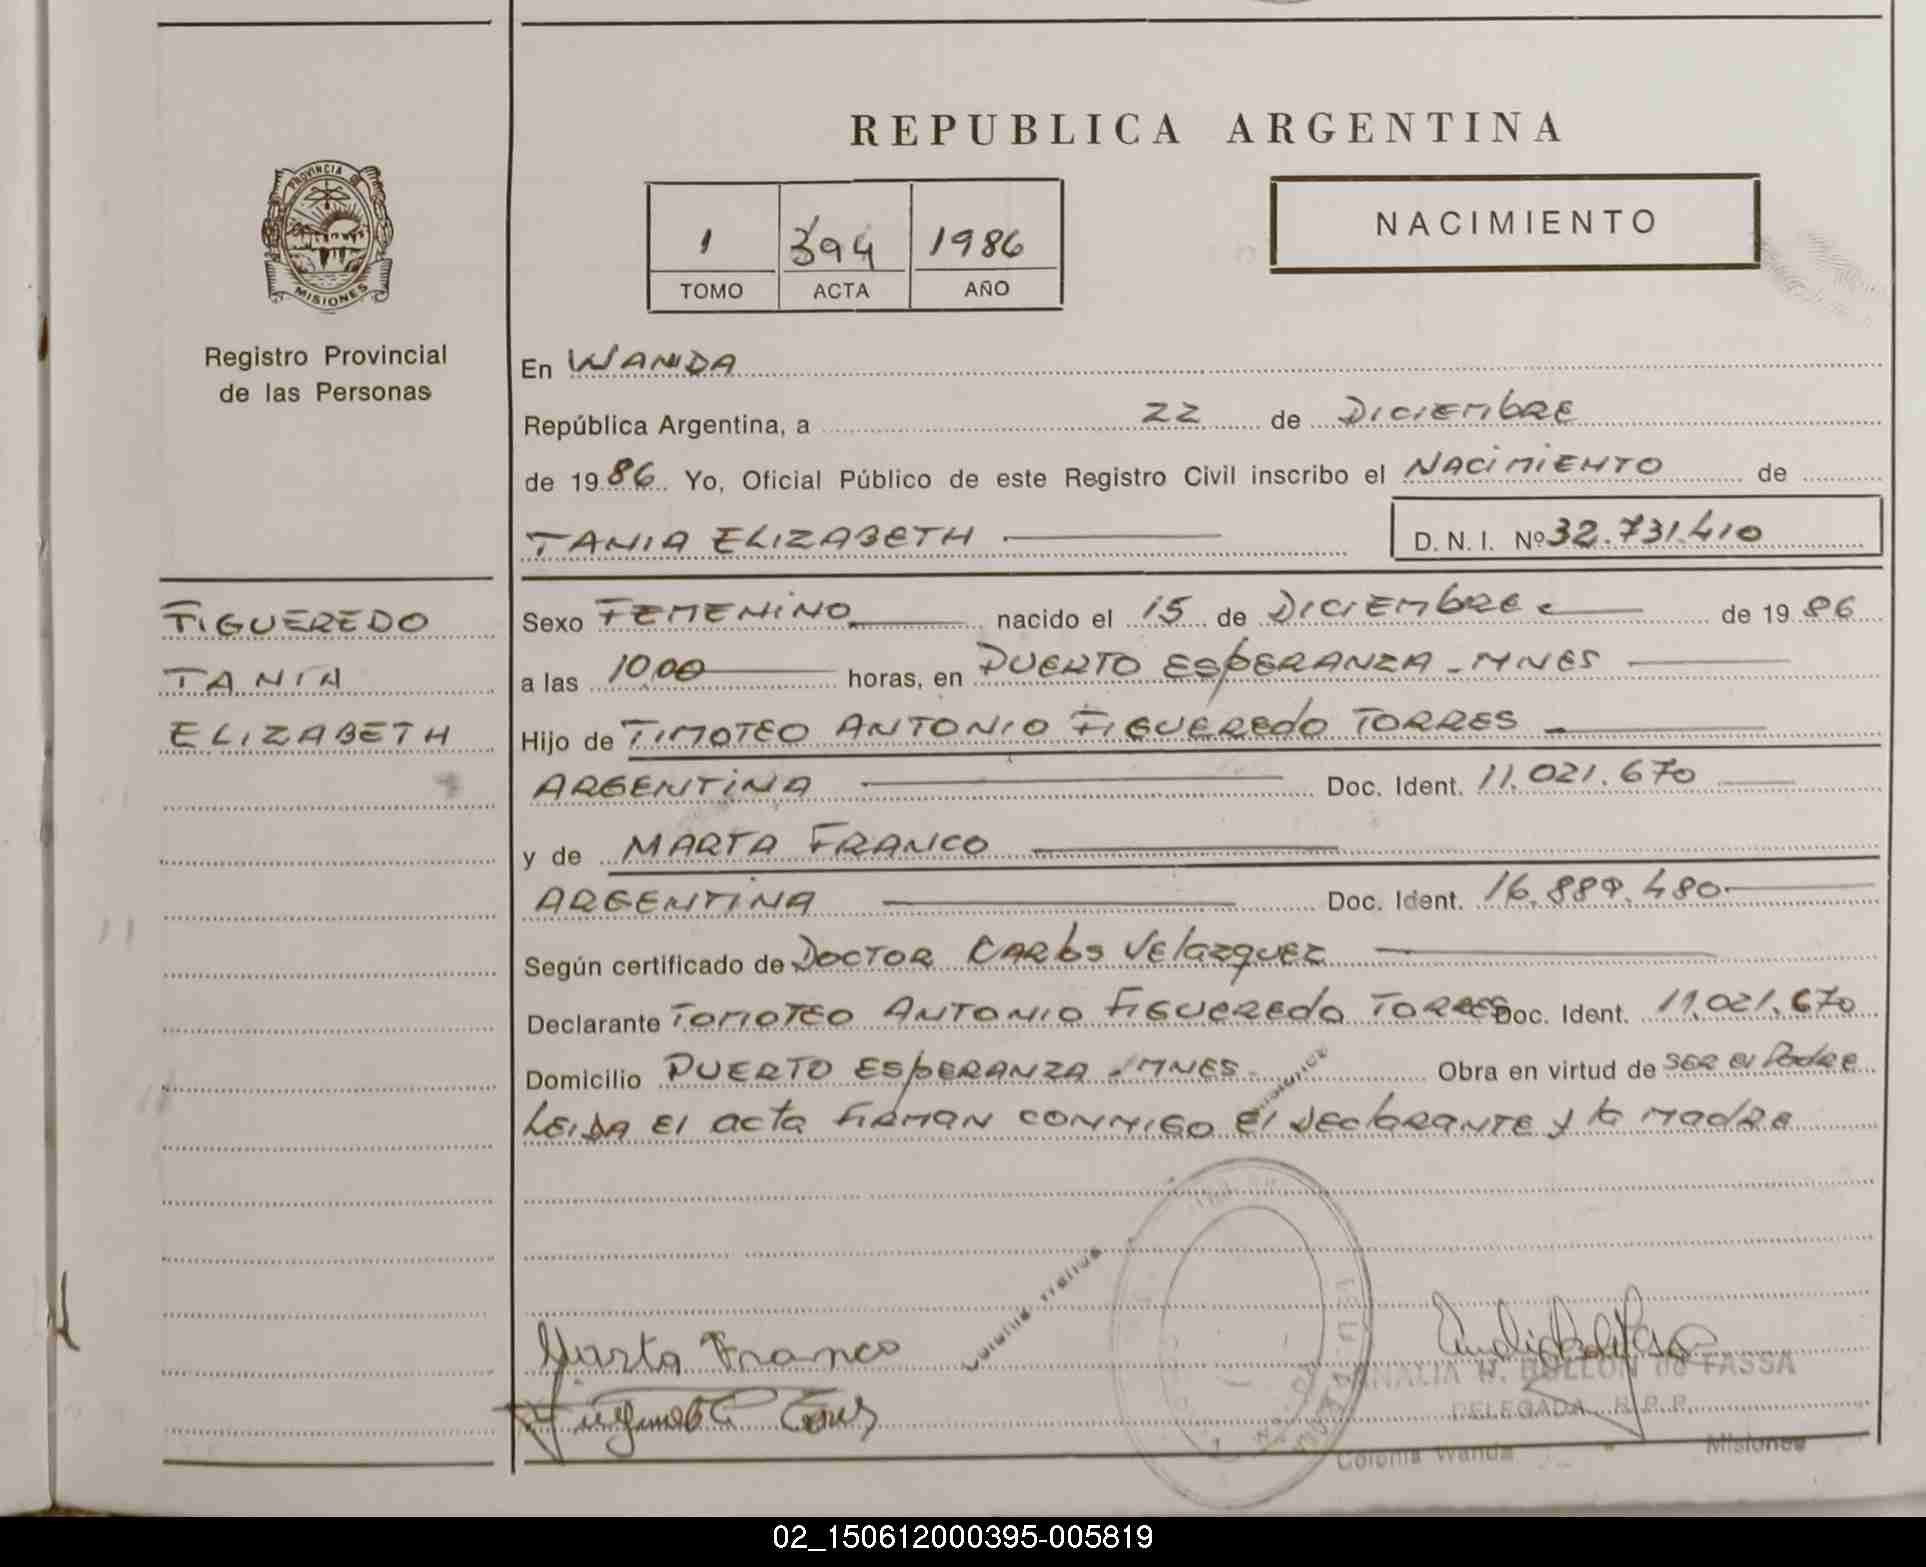 REPUBLICA ARGENTINA
PROVINCIA DE
MISIONES
Registro Provincial
de las Personas
1 394 1986
TOMO ACTA AÑO
NACIMIENTO
En WANDA
República Argentina, a 22 de DICIEMbRE
de 1986 Yo, Oficial Público de este Registro Civil inscribo el NACIMIENTO de
TANIA ELIZABETH D. N. I. Nº 32.731.410
FIGUEREDO
TANIA
ELIZABETH
Sexo FEMENINO nacido el 15 de DICIEMbRE de 1986
a las 10,00 horas, en PUERTO ESPERANZA - MNES
Hijo de TIMOTEO ANTONIO FIGUEREDO TORRES
ARGENTINA Doc. Ident. 11.021.670
y de MARTA FRANCO
ARGENTINA Doc. Ident. 16.889.480
Según certificado de DOCTOR CARLOS VELAZQUEZ
Declarante TOMOTEO ANTONIO FIGUEREDO TORRES Doc. Ident. 11.021.670
Domicilio PUERTO ESPERANZA - MNES - Obra en virtud de SER El PADRE
LEIDA El ACTA FIRMAN CONMIGO El DEClARANTE y lA MADRE
Marta Franco
ANALIA N. BULLON de FASSA
DELEGADA R. P. P.
Colonia Wanda - Misiones
Colonia Wanda
Misiones
02_150612000395-005819